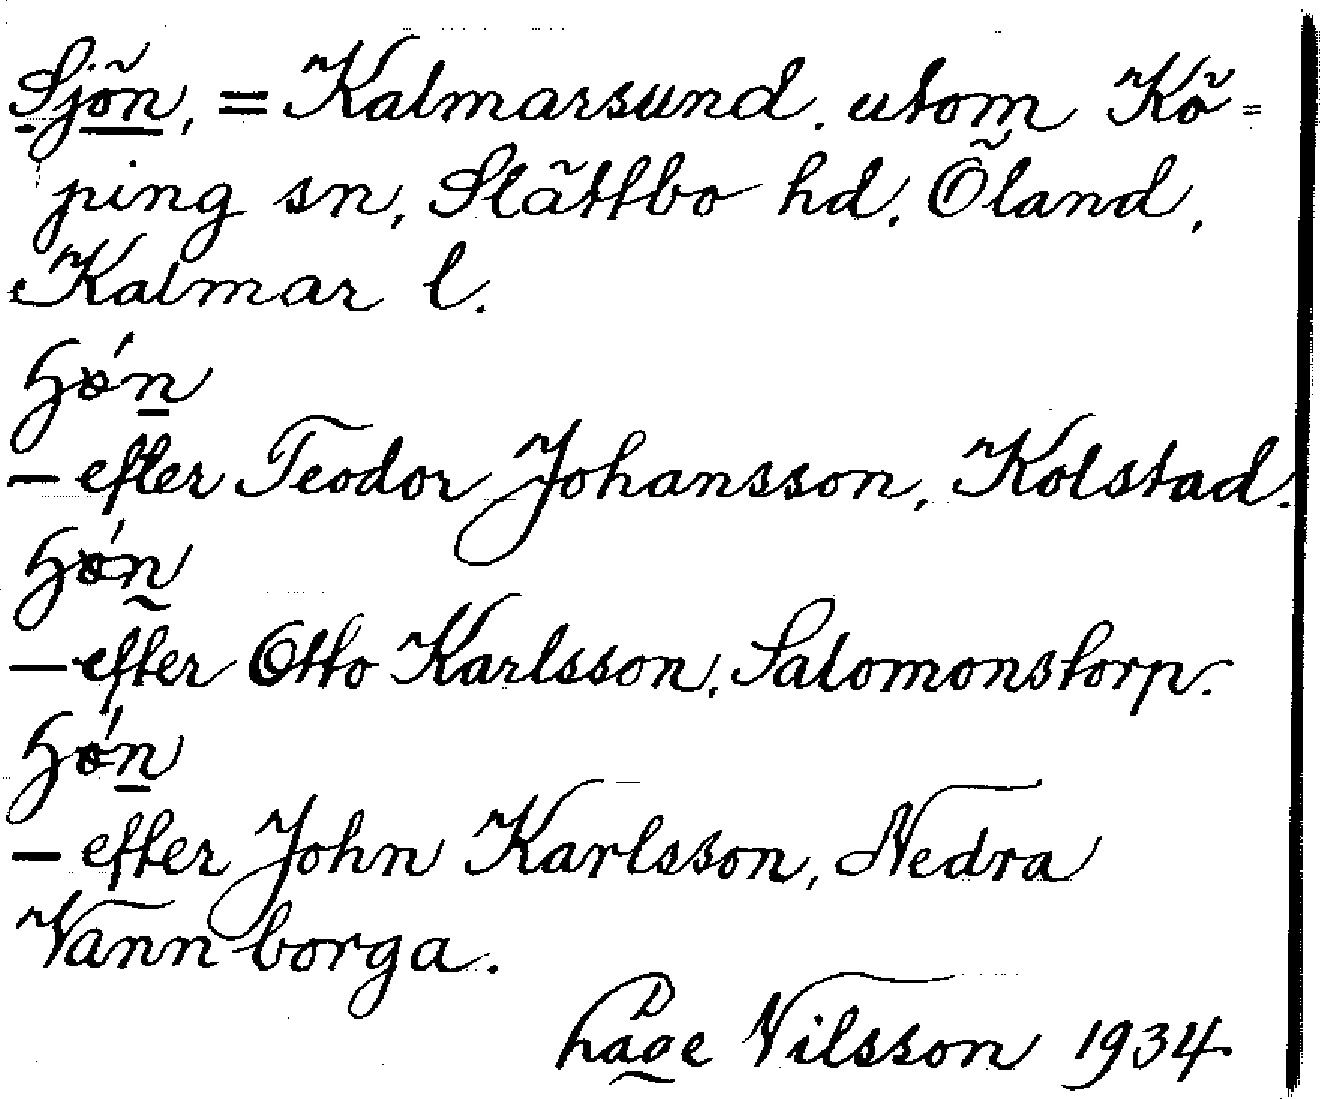 Sjön, = Kalmarsund. utom Kö=
ping sn, Slättbo hd. Öland,
Kalmar l.
– efter Teodor Johansson, Kolstad.
– efter Otto Karlsson, Salomonstorp.
– efter John Karlsson, Nedra
Vannborga.
Nilsson 1934